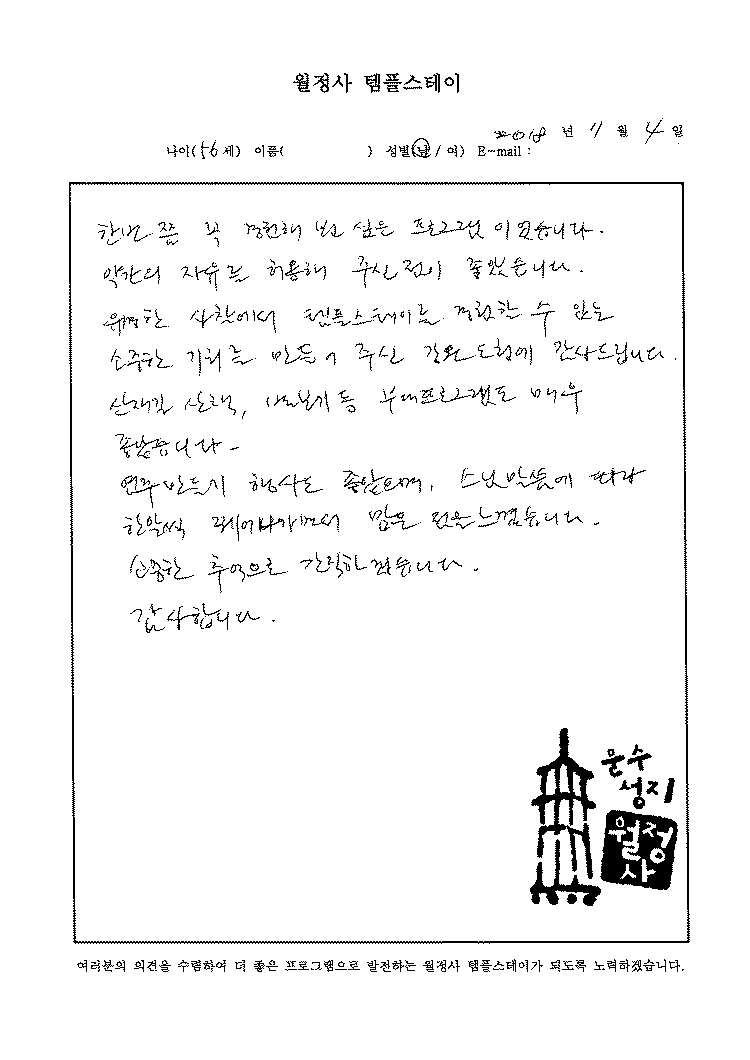 월정사 템플스테이
2018 년 11 월 4 일
나이(56 세) 이름( ) 성별(남/ 여) E-mail :
한번 쯤 꼭 경험해 보고 싶은 프로그램 이었습니다.
약간의 자유를 허용해 주신점이 좋았습니다.
유명한 사찰에서 템플스테이를 경험할 수 있는
소중한 기회를 만들어 주신 감사드립니다.
산책, 등 부대프로그램도 매우
좋았습니다.
염주만들기 행사도 좋았으며, 스님말씀에 따라
한알씩 꿰어나가면서 많은 것을느꼈습니다.
소중한 추억으로 간직하겠습니다.
감사합니다.
문수
성지
월정
사
여러분의 의견을 수렴하여 더 좋은 프로그램으로 발전하는 월정사 템플스테이가 되도록 노력하겠습니다.